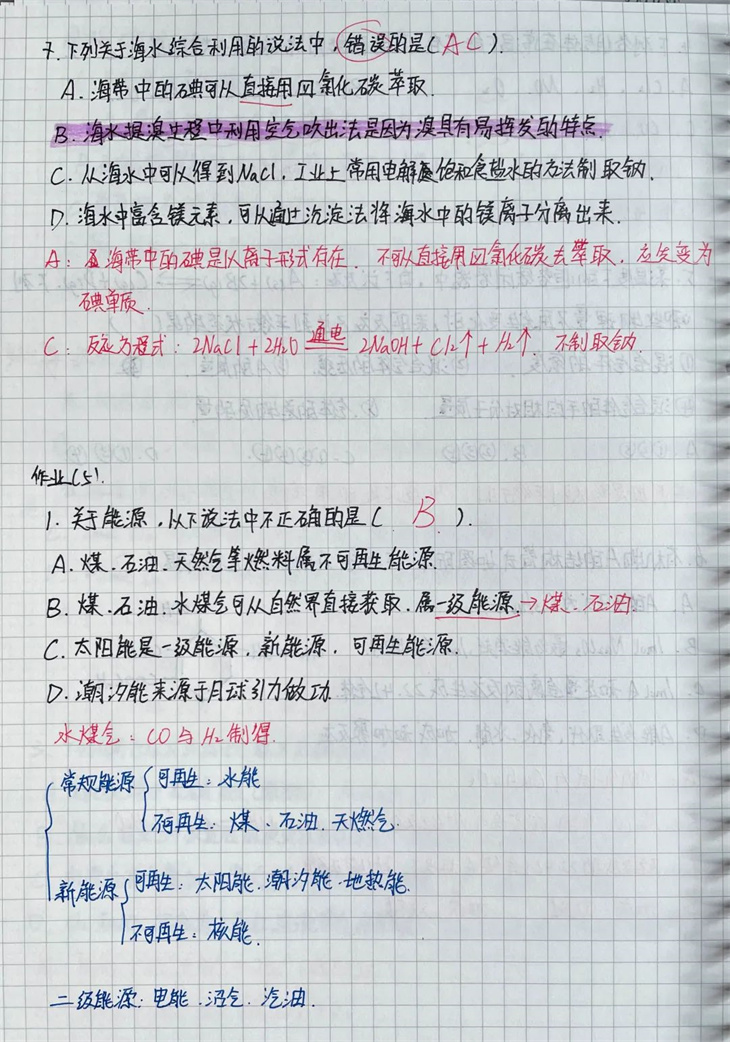 7. 下列关于海水综合利用的说法中，错误的是(AC).
A. 海带中的碘可以直接用四氯化碳萃取.
B. 海水提溴史程中利用空气吹出法是因为溴具有易挥发的特点.
C. 从海水中可以得到NaCl, 工业上常用电解饱和食盐水的方法制取钠.
D. 海水中富含镁元素, 可以通过沉淀法将海水中的镁离子分离出来.
A: 海带中的碘是以离子形式存在. 不可以直接用四氯化碳去萃取, 应先变为
碘单质.
C: 反应方程式: 2NaCl + 2H₂O 通电 2NaOH + Cl₂↑ + H₂↑. 不制取钠.
作业(5).
1. 关于能源, 以下说法中不正确的是( B. ).
A. 煤.石油.天然气等燃料属不可再生能源.
B. 煤.石油.水煤气可从自然界直接获取.属一级能源.→煤、石油.
C. 太阳能是一级能源, 新能源, 可再生能源.
D. 潮汐能来源于月球引力做功.
水煤气: CO与H₂制得.
常规能源 可再生: 水能
不可再生: 煤、石油.天燃气.
新能源 可再生: 太阳能.潮汐能.地热能.
不可再生: 核能.
二级能源: 电能.沼气.汽油.